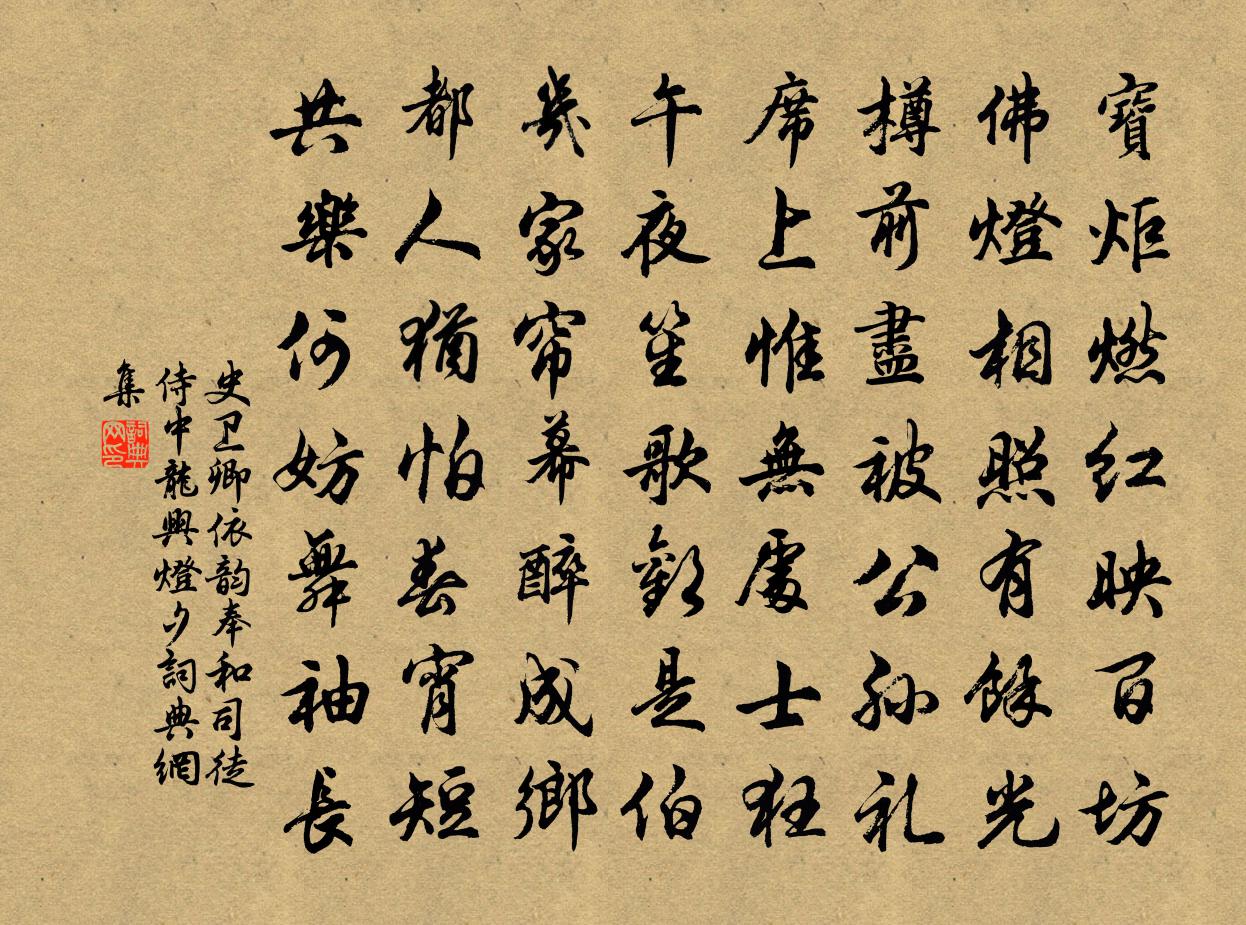 寶炬燃红映百坊
佛燈相照有餘光
樽前盡被公孙礼
席上惟無處士狂
午夜笙歌歡是伯
幾家帘幕醉成鄉
都人猶怕春宵短
共樂何妨舞袖長
史卫卿依韵奉和司徒
侍中龍興燈夕詞典網
集
詞典网印